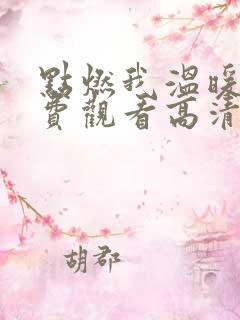 點燃我 溫暖
費觀看高清
胡郡